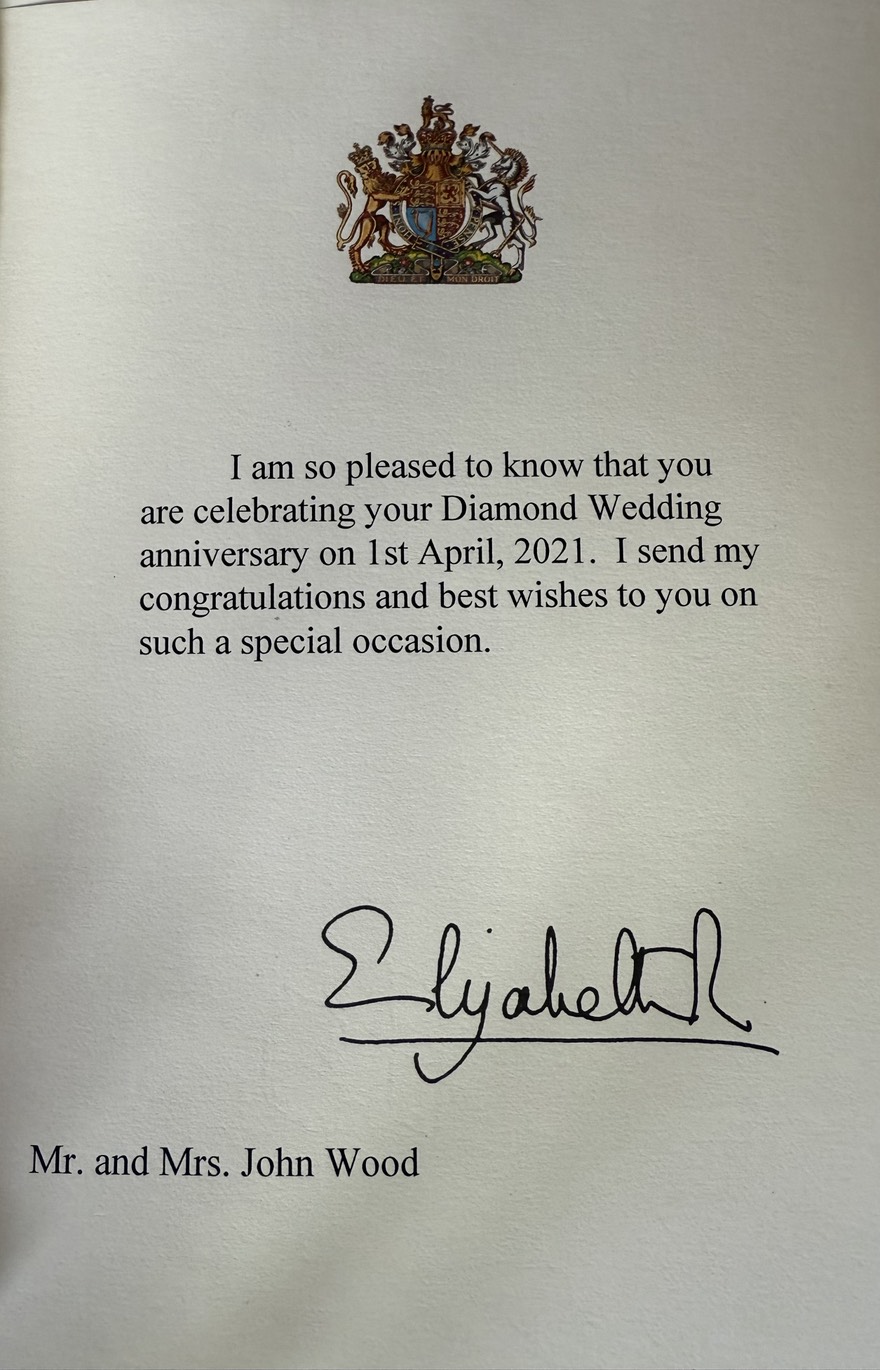 DIEU ET MON DROIT
I am so pleased to know that you
are celebrating your Diamond Wedding
anniversary on 1st April, 2021. I send my
congratulations and best wishes to you on
such a special occasion.
Elizabeth R
Mr. and Mrs. John Wood